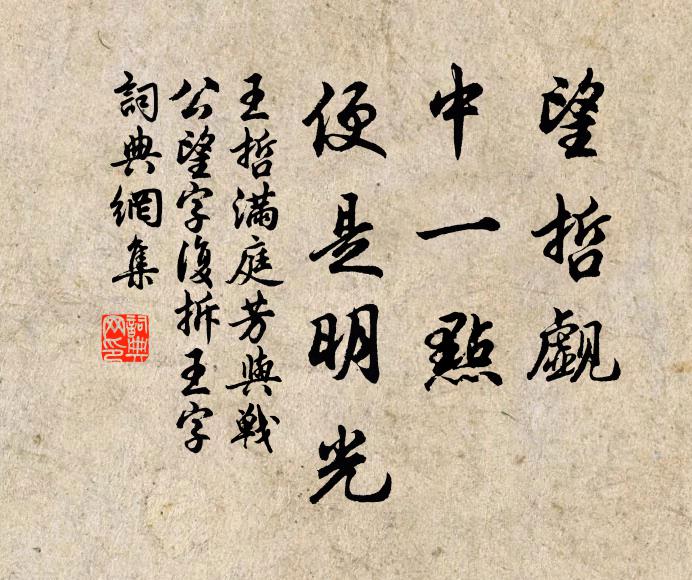 望哲覰
中一點
便是明光
王哲滿庭芳與戰
公望字復拆王字
詞典網集
詞典網印